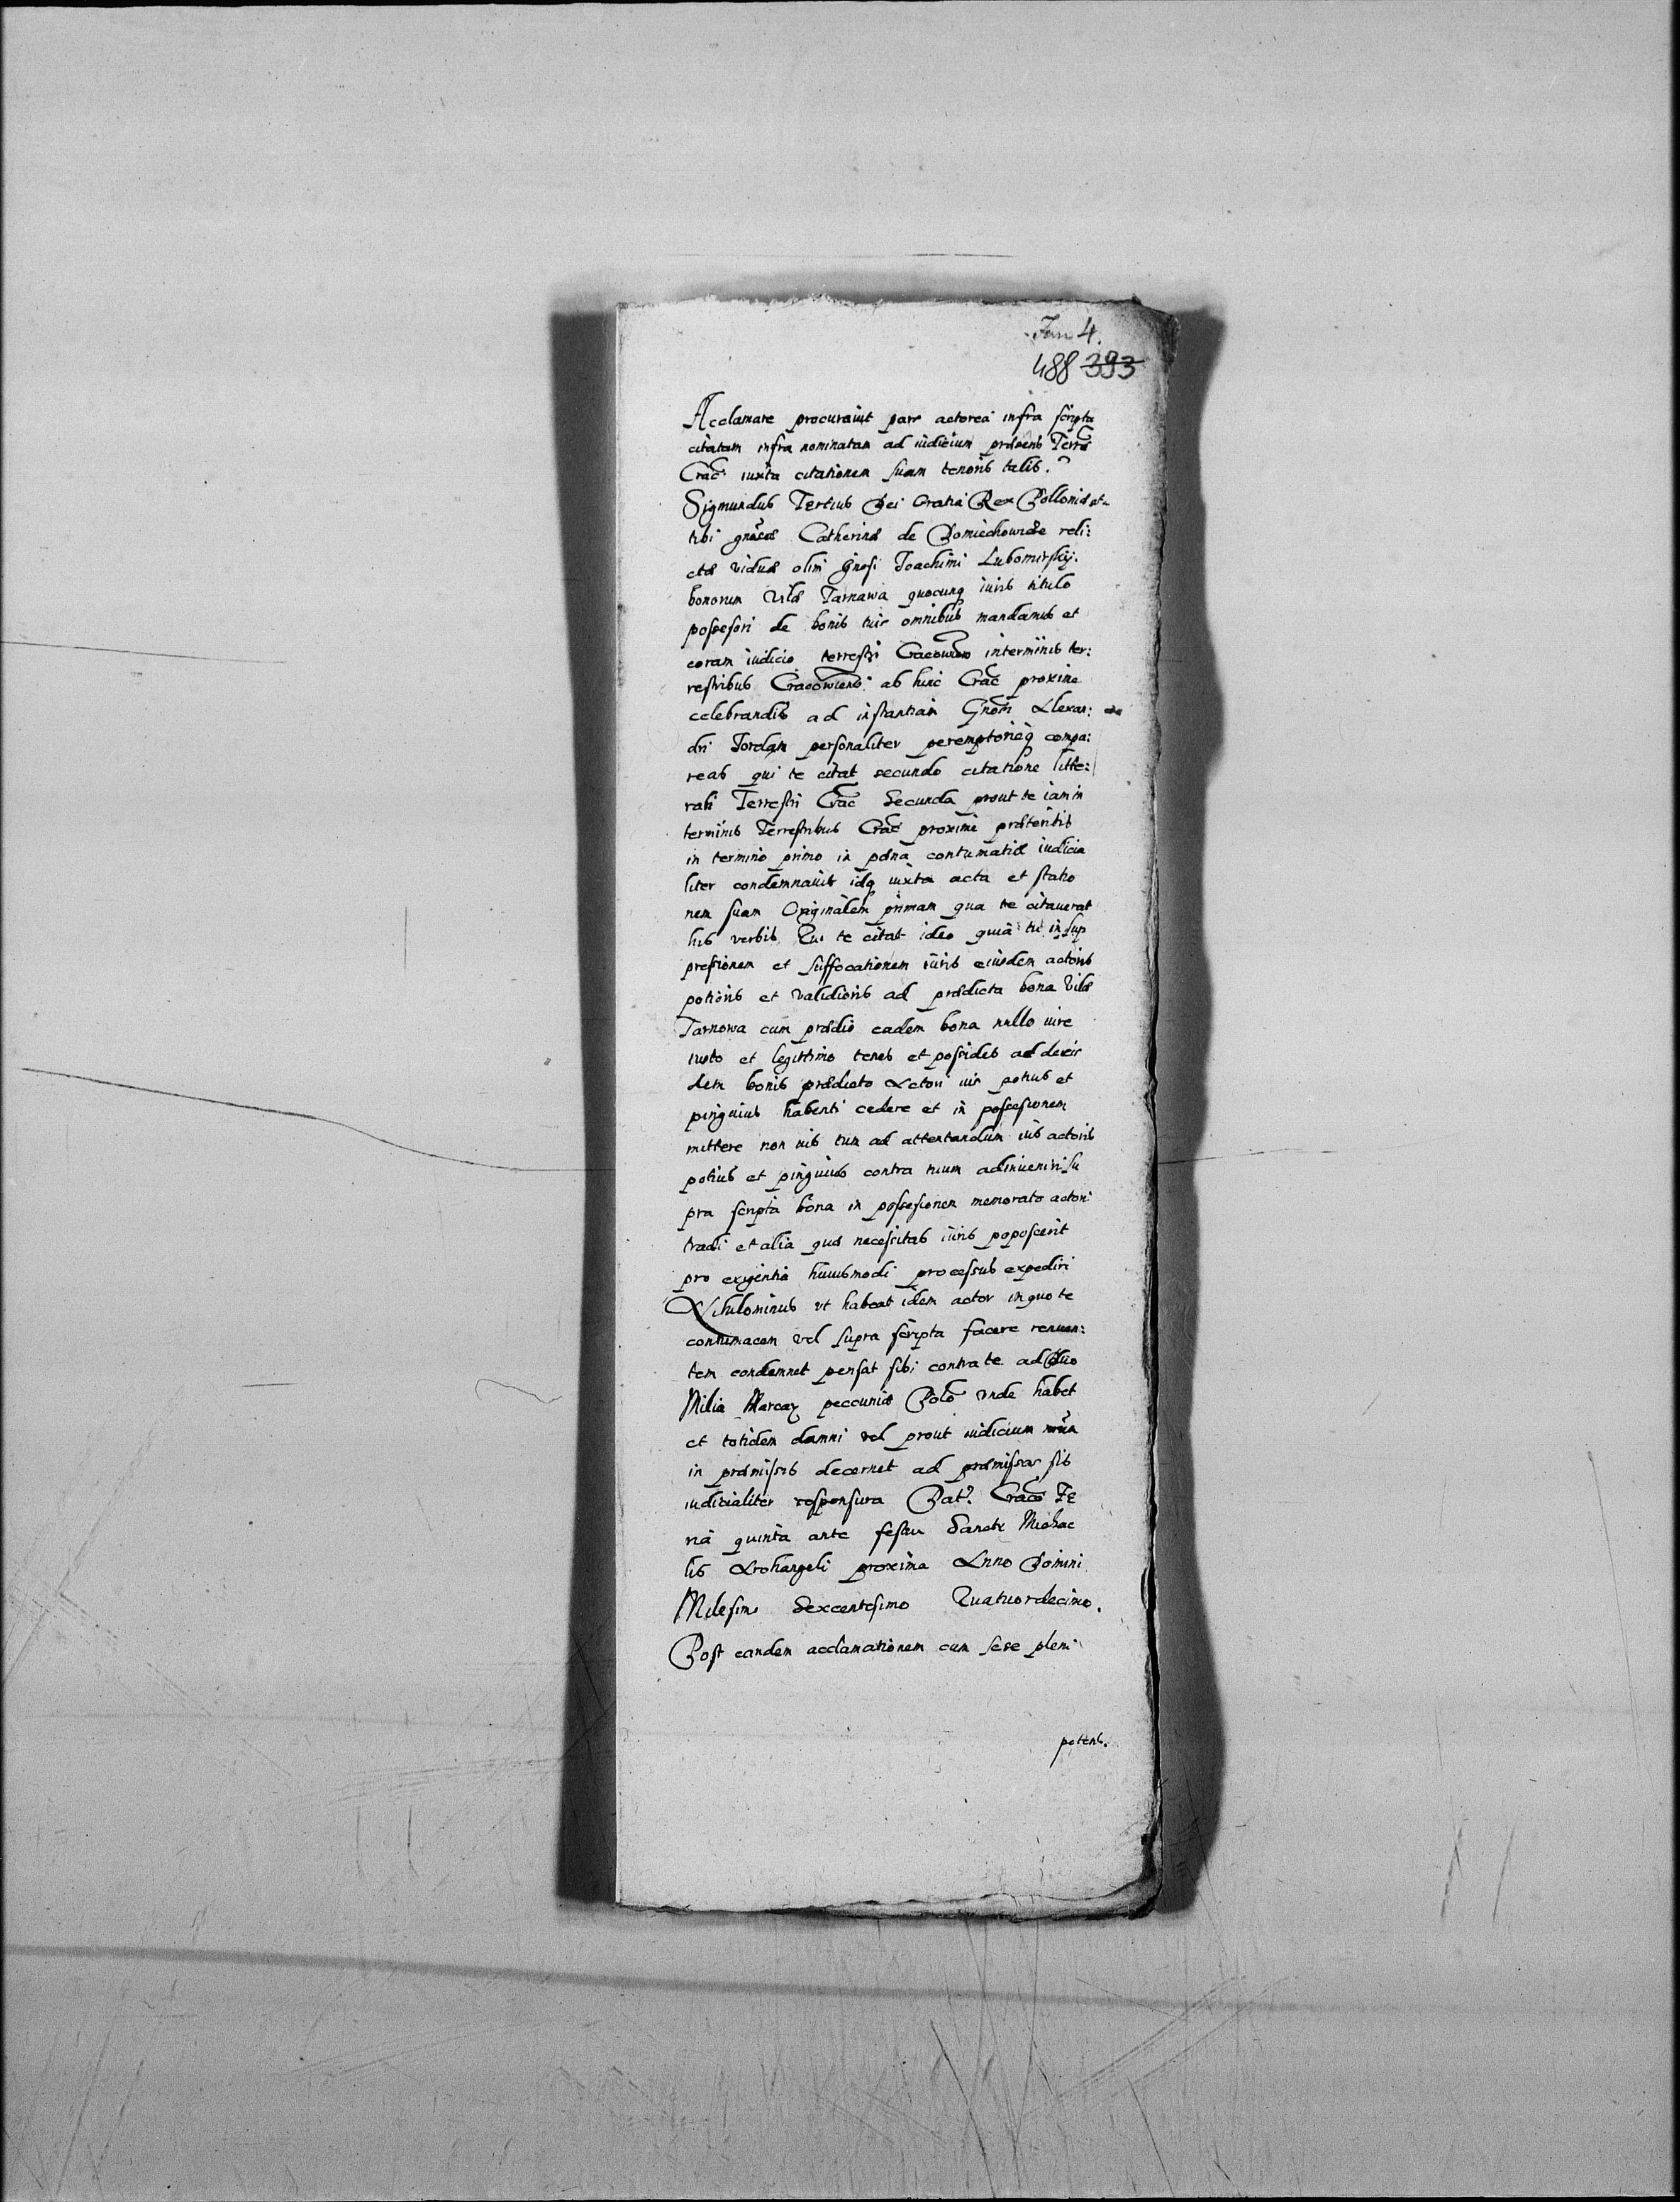 Jun 4.
488 393
Acclamare procuravit pars actorea infra scripta
citatam infra nominatam ad iudicium præsens Terræ
Crac iuxta citationem suam tenoris talis.
Sigmundus Tertius Dei Gratia Rex Polloniæ et
tibi gnosæ Catherinæ de Domiechowicze reli:
ctæ viduæ olim Gnosi Joachimi Lubomirskÿ.
bonorum Villæ Tarnawa quocunq iuris titulo
possessori de bonis tuis omnibus mandamus et
coram iudicio terrestri Cracowien interminis ter:
restribus Cracowiens: ab hinc Crac proxime
celebrandis ad instantiam Gnosi Alexan:
dri Jordan personaliter peremptorieq compa:
reas qui te citat secundo citatione litte:
rali Terrestri Crac Secunda prout te iam in
terminis Terrestribus Crac proxime præteritis
in termino primo in pæna contumatiæ iudicia
liter condemnavit idq iuxta acta et statio
nem suam Originalem primam qua te citauerat
his verbis Qui te citat ideo quia tu in sup
pressionem et suffocationem iuris eiusdem actoris
potioris et validioris ad prædicta bona Villæ
Tarnowa cum prædio eadem bona nullo iure
iusto et legittimo tenes et possides ad de eis
dem bonis prædicto Actori ius potius et
pinguius habenti cedere et in possessionem
mittere non uis tum ad attentandum ius actoris
potius et pinguius contra tuum adinveniri su
pra scripta bona in possessionem memorato actori
tradi et alia quæ necessitas iuris poposcerit
pro exigentia huiusmodi processus expediri
Nihilominus ut habeat idem actor in quo te
contumacem vel supra scripta facere renuen:
tem condemnet pensat sibi contra te ad Duo
Milia Marcaꝝ peccuniæ Polo unde habet
et totidem damni vel prout iudicium nrum
in præmissis decernet ad præmissa sis
iudicialiter responsura Dat. Crac Fe
ria quinta ante festu Sancti Michae
lis Archangeli proxima Anno Domini
Milesimo Sexcentesimo Quatuordecimo.
Post eandem acclamationem cum sese pleni
potens.